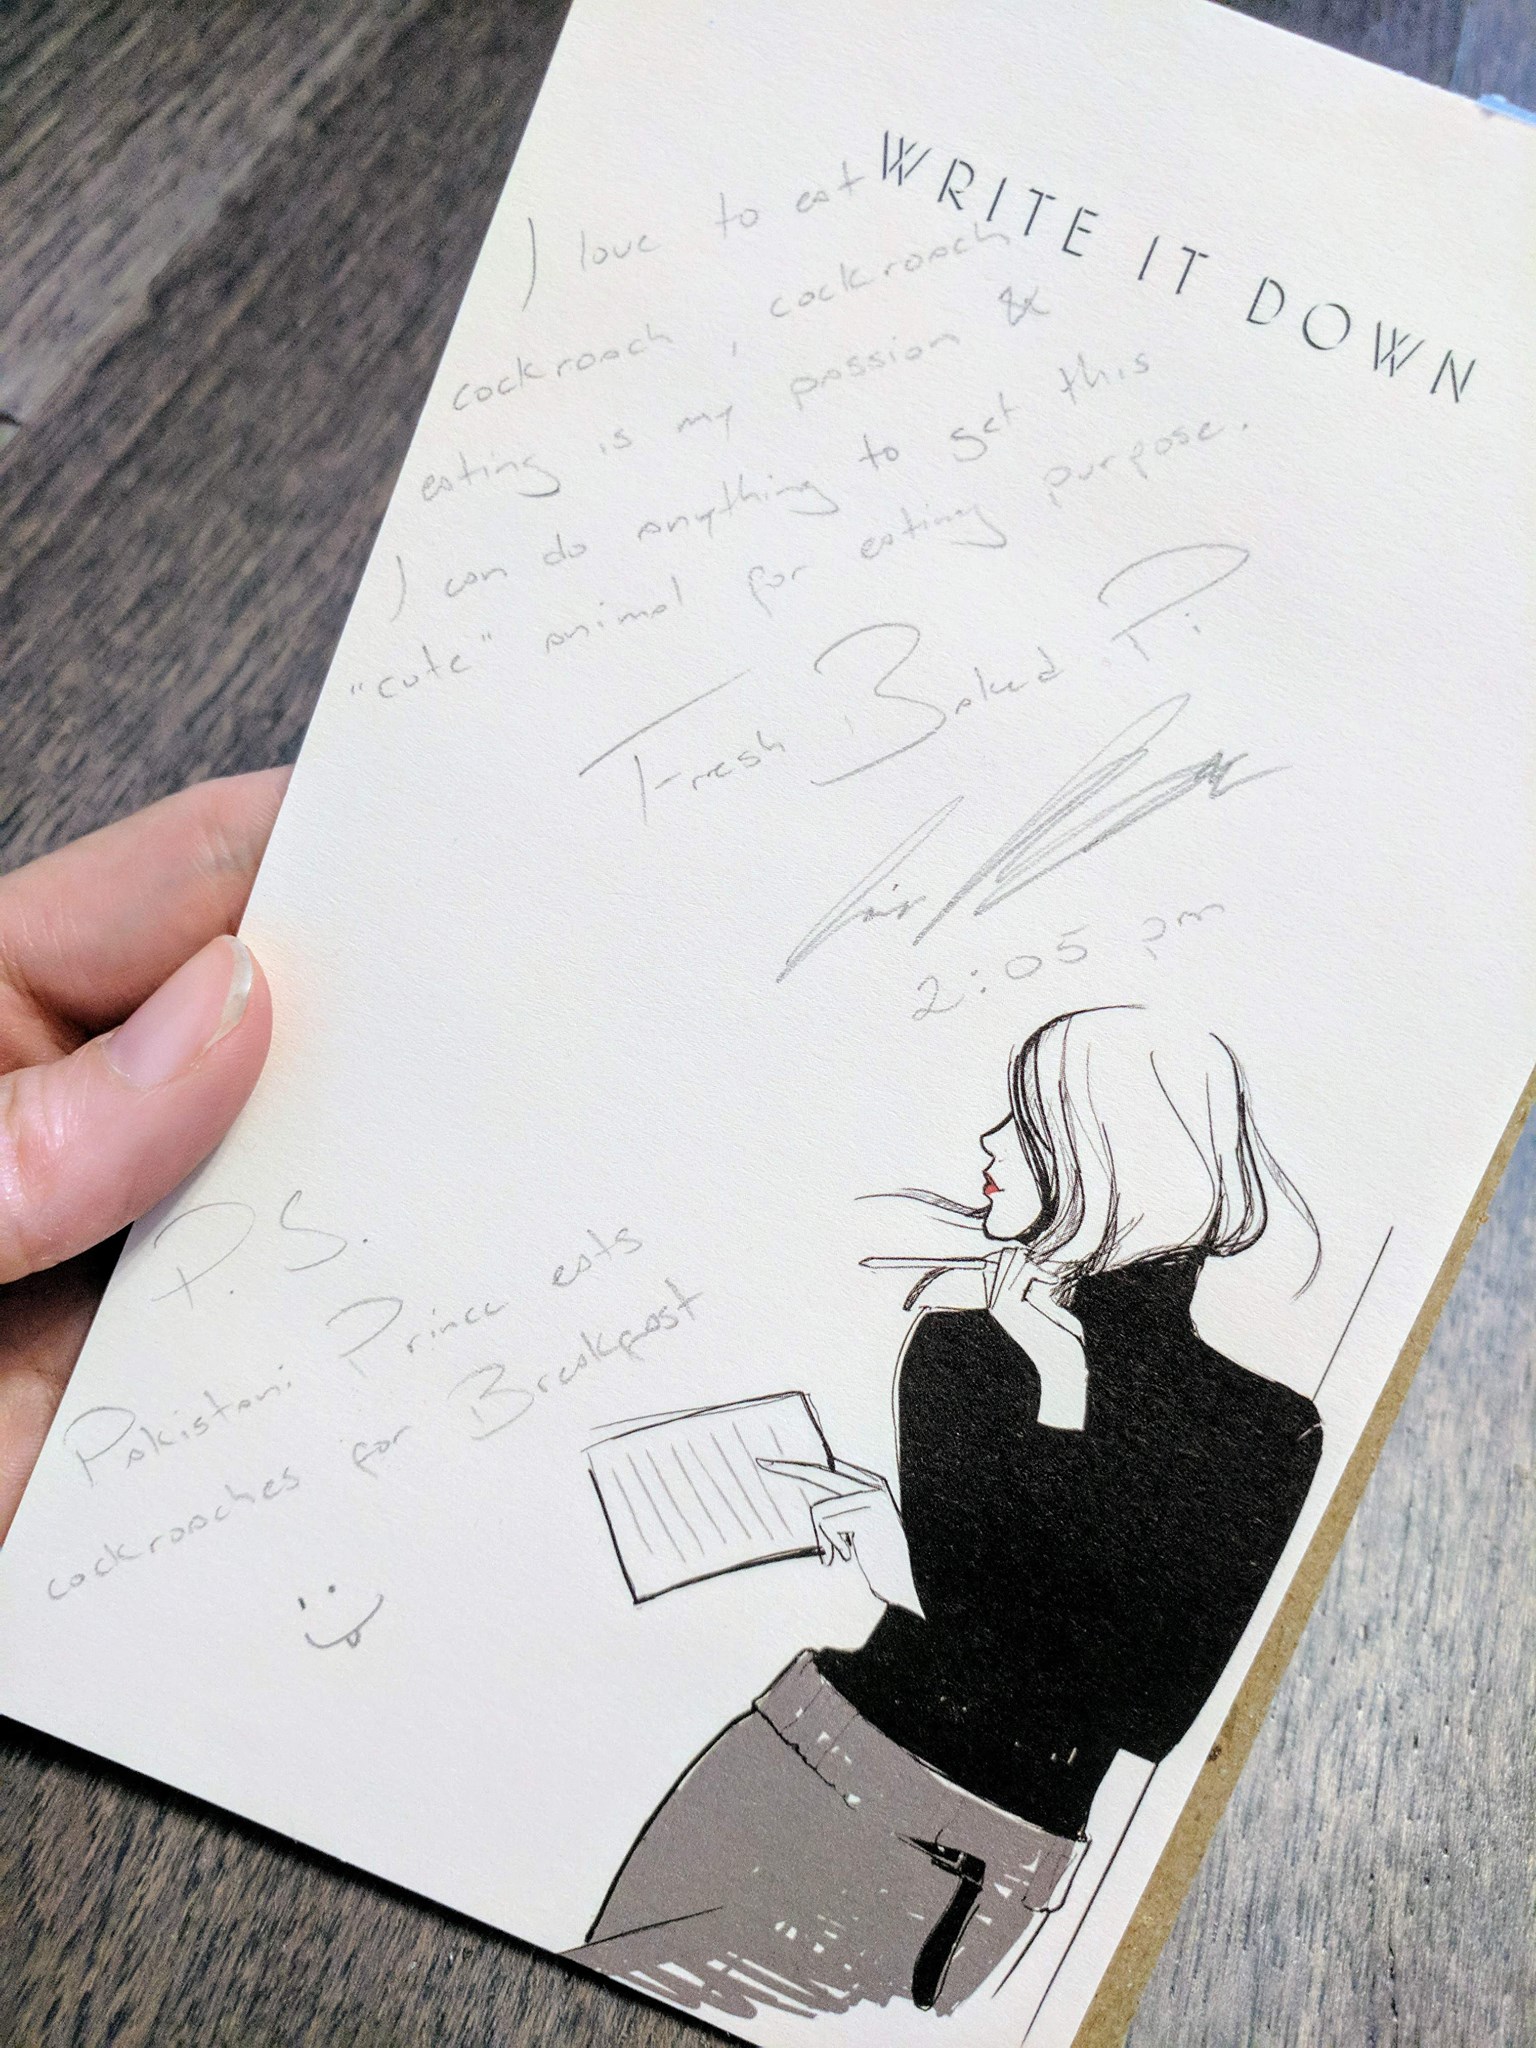 WRITE IT DOWN
I love to eat
cockroach, cockroach
eating is my passion &
I can do anything to get this
"cute" animal for eating purpose.
Fresh Baked Pi
2:05 pm
P.S.
Pakistani Prince eats
cockroaches for Breakfast